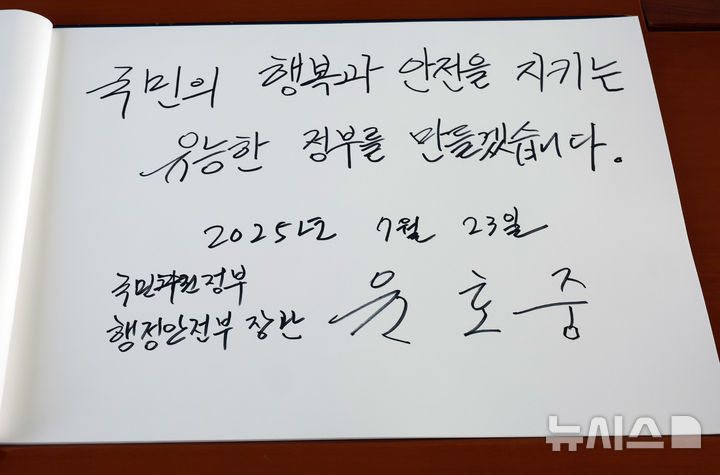 국민의 행복과 안전을 지키는
유능한 정부를 만들겠습니다.
2025년 7월 23일
국민주권정부
행정안전부 장관 윤호중
뉴시스